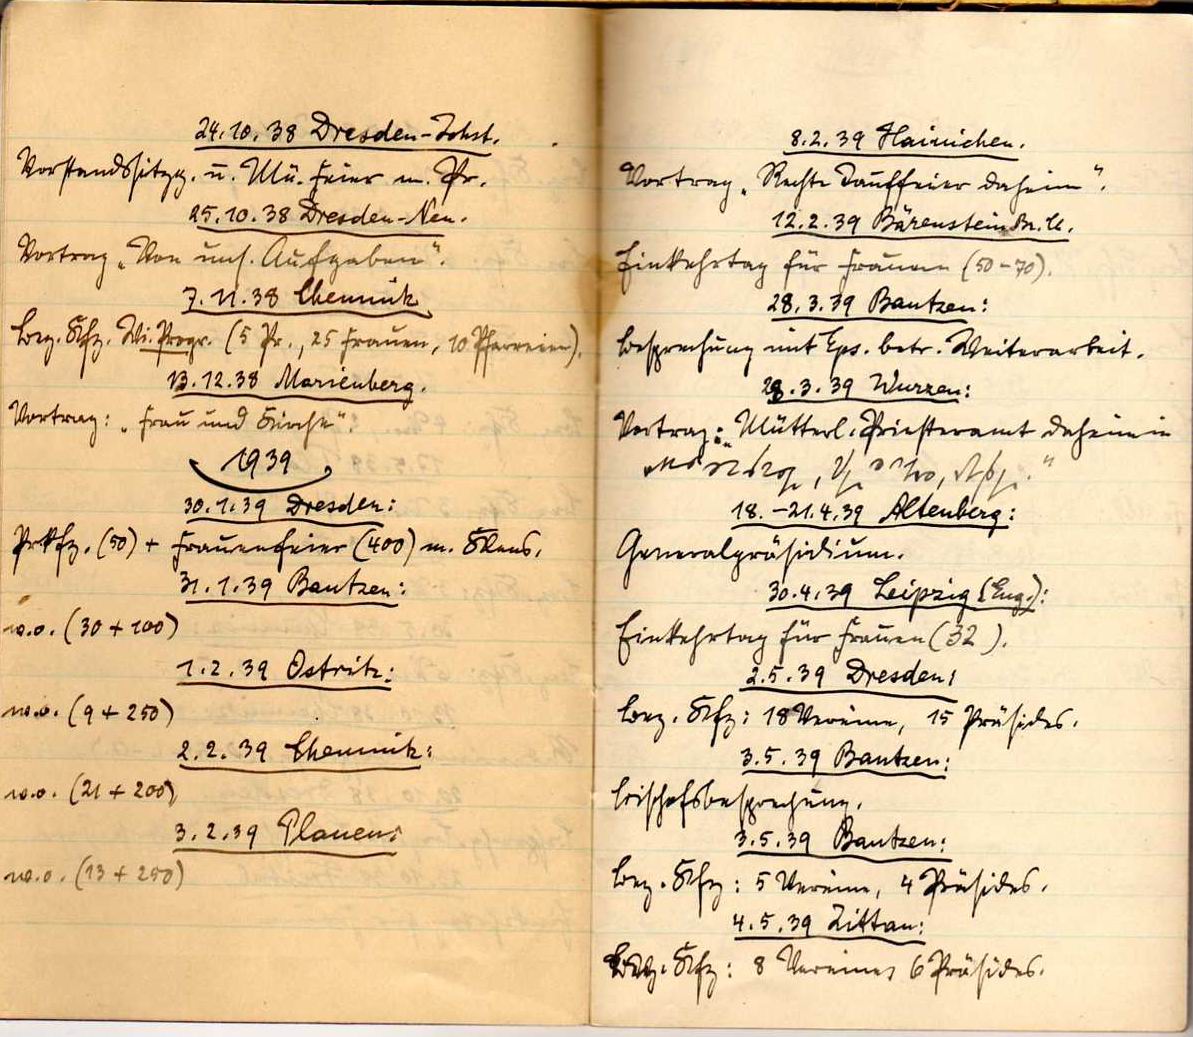 24.10.38 Dresden-Johst.
Vorstandssitzg. u. Mü. Feier m. Pr.
25.10.38 Dresden-Neu.
Vortrag „Von uns. Aufgaben".
7.11.38 Chemnitz
Bez. Kfz. Wi. Progr. (5 Pr., 25 Frauen, 10 Pfarreien).
13.12.38 Marienberg.
Vortrag: „Frau und Kirche"
1939
30.1.39 Dresden:
Prkfz. (50) + Frauenfeier (400) m. Klens.
31.1.39 Bautzen:
w.o. (30 + 100)
1.2.39 Ostritz:
w.o. (9 + 250)
2.2.39 Chemnitz:
w.o. (21 + 200)
3.2.39 Plauen:
w.o. (13 + 250)
8.2.39 Hainichen.
Vortrag „Rechte Tauffeier daheim".
12.2.39 Bärenstein
Einkehrtag für Frauen (50-70).
28.3.39 Bautzen:
Besprechung mit Eps. betr. Weiterarbeit.
28.3.39 Wurzen:
Vortrag: Mütterl. Priesteramt daheim in
18.-21.4.39 Altenberg:
Generalpräsidium.
30.4.39 Leipzig (Eng.):
Einkehrtag für Frauen (32).
2.5.39 Dresden:
Bez. Kfz: 18 Vereine, 15 Präsides.
3.5.39 Bautzen:
Bischofsbesprechung.
3.5.39 Bautzen:
Bez. Kfz: 5 Vereine, 4 Präsides.
4.5.39 Zittau:
Bez. Kfz: 8 Vereine, 6 Präsides.